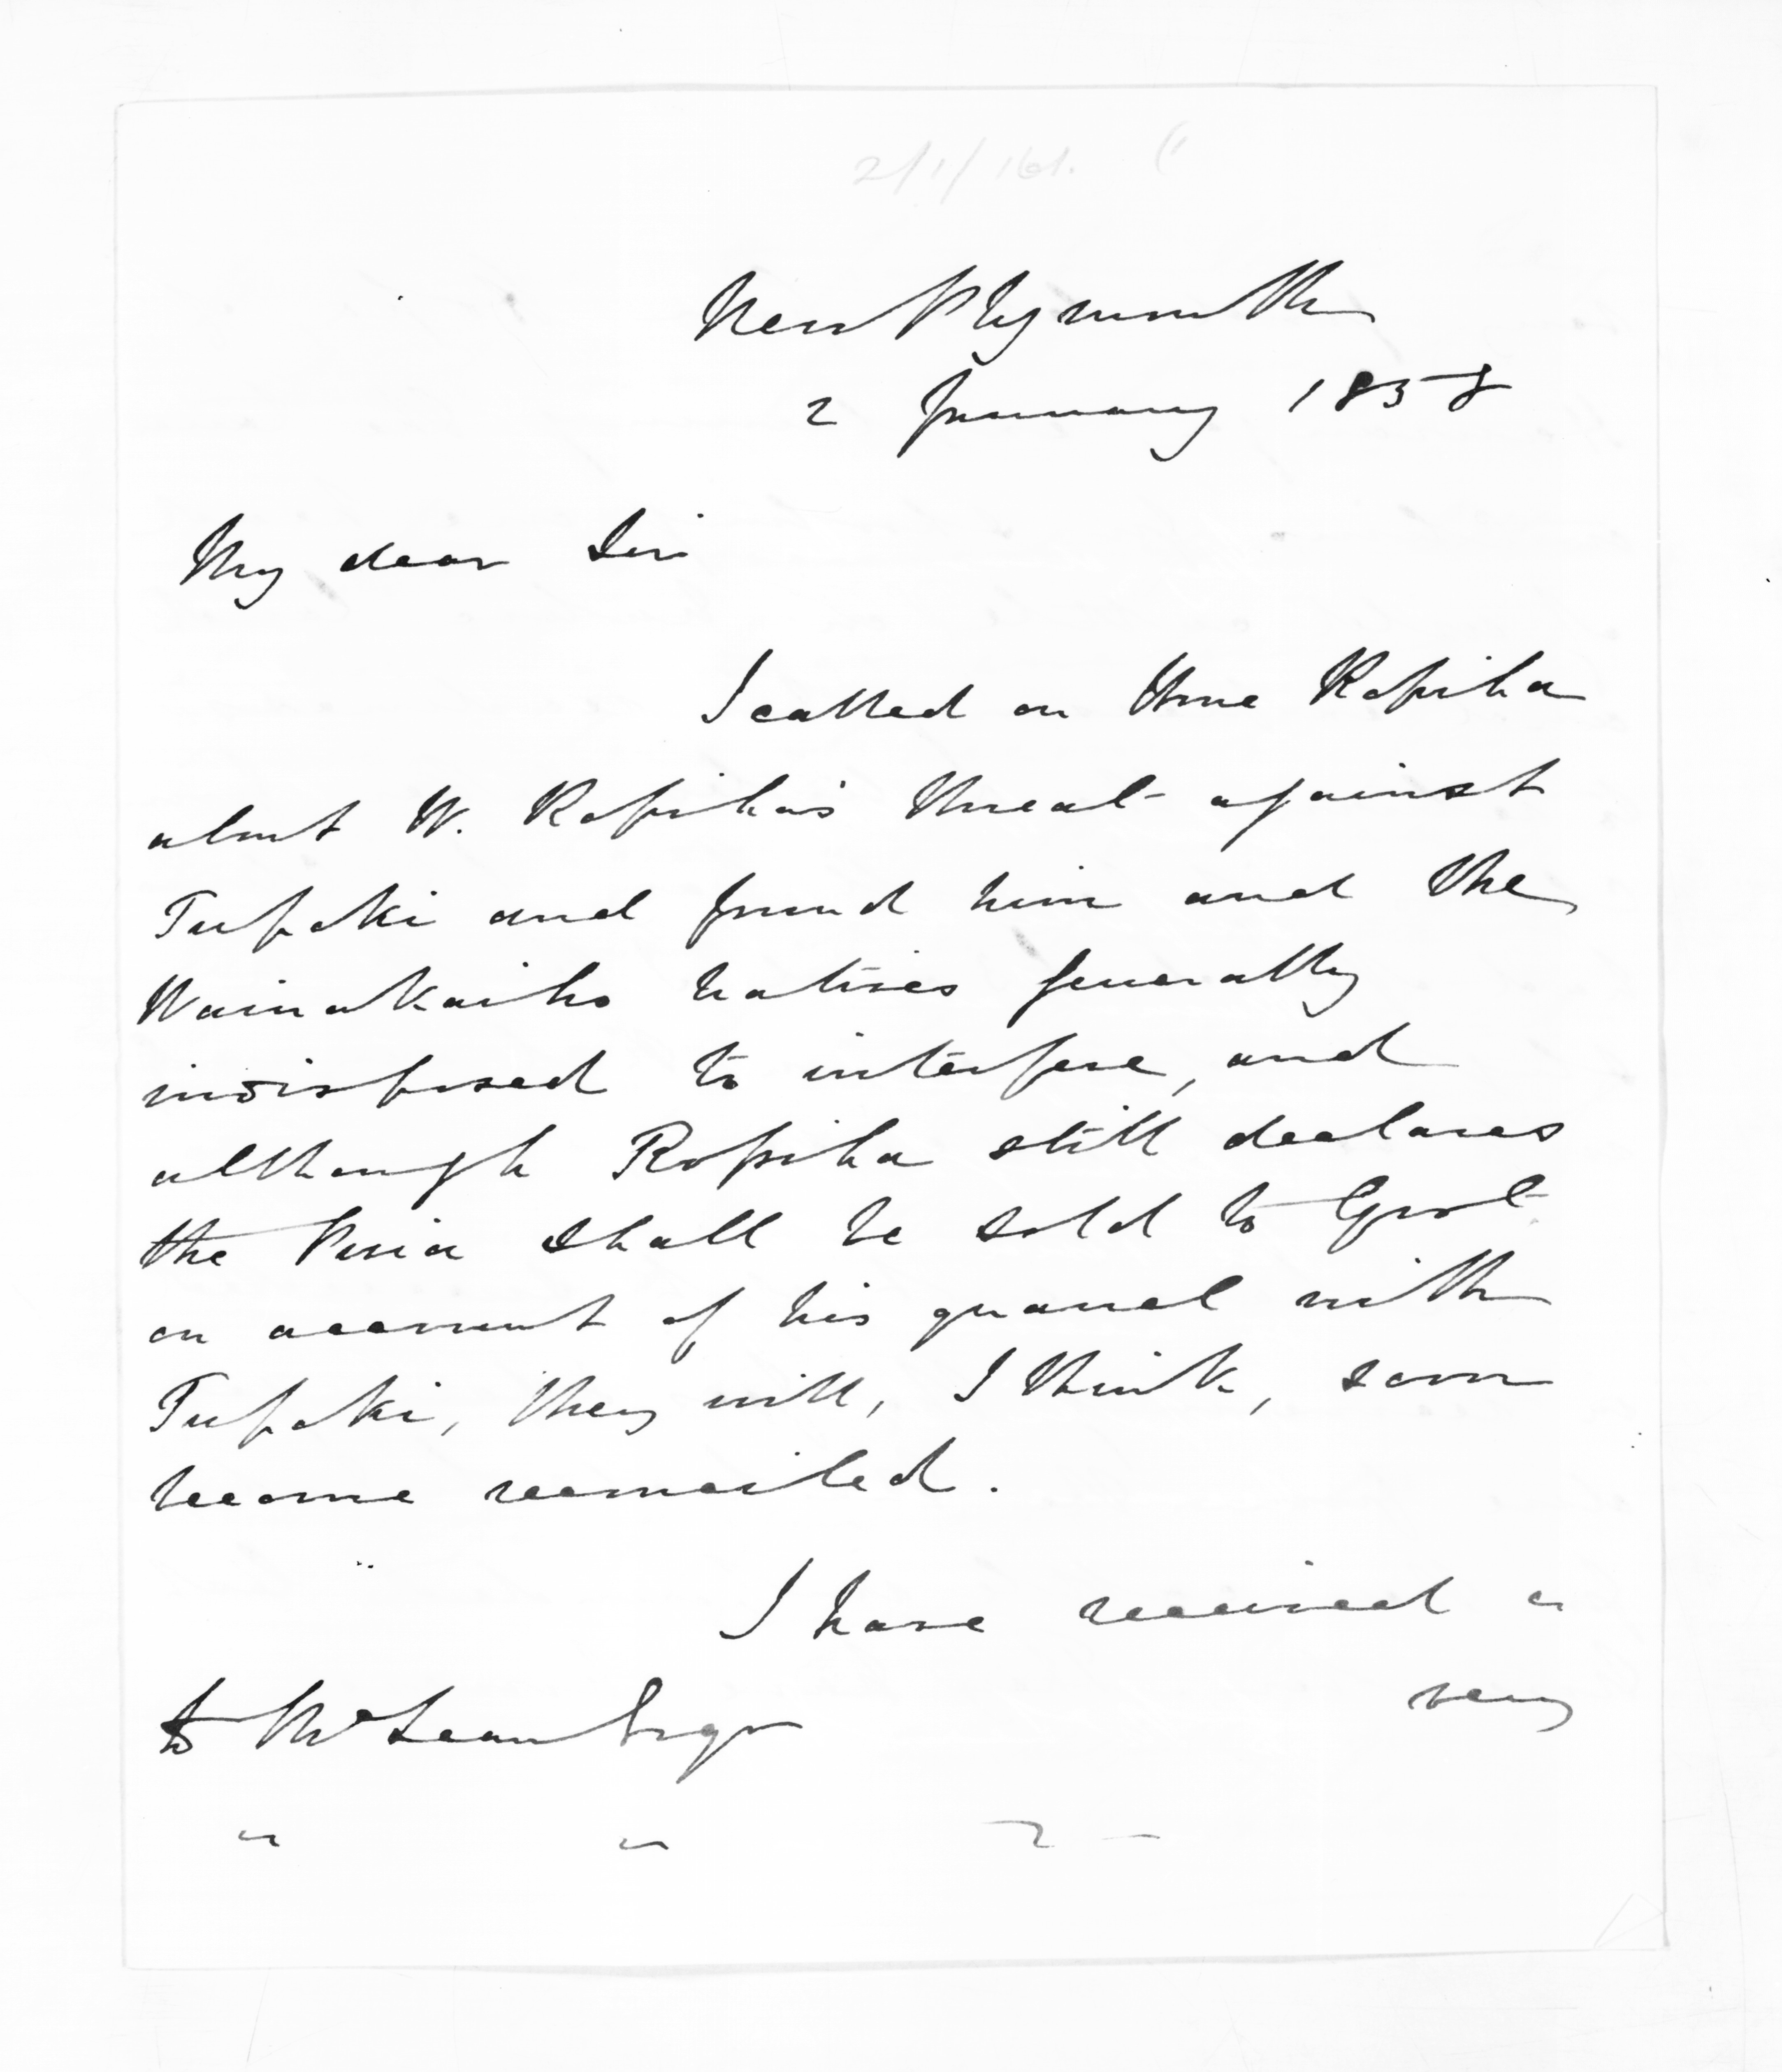 2/1/161.
New Plymouth
2 January 1858
My dear Sir
I called on Ropiha
about W. Ropiha's threat against
Tupoki and found him and the
Waiwakaiho natives generally
indisposed to interfere, and
although Ropiha still declares
the Puia shall be sold to Govt
on account of his quarrel with
Tupoki, they will, I think, soon
become reconciled.
I have received a
very
to McLean Esqr
" " "